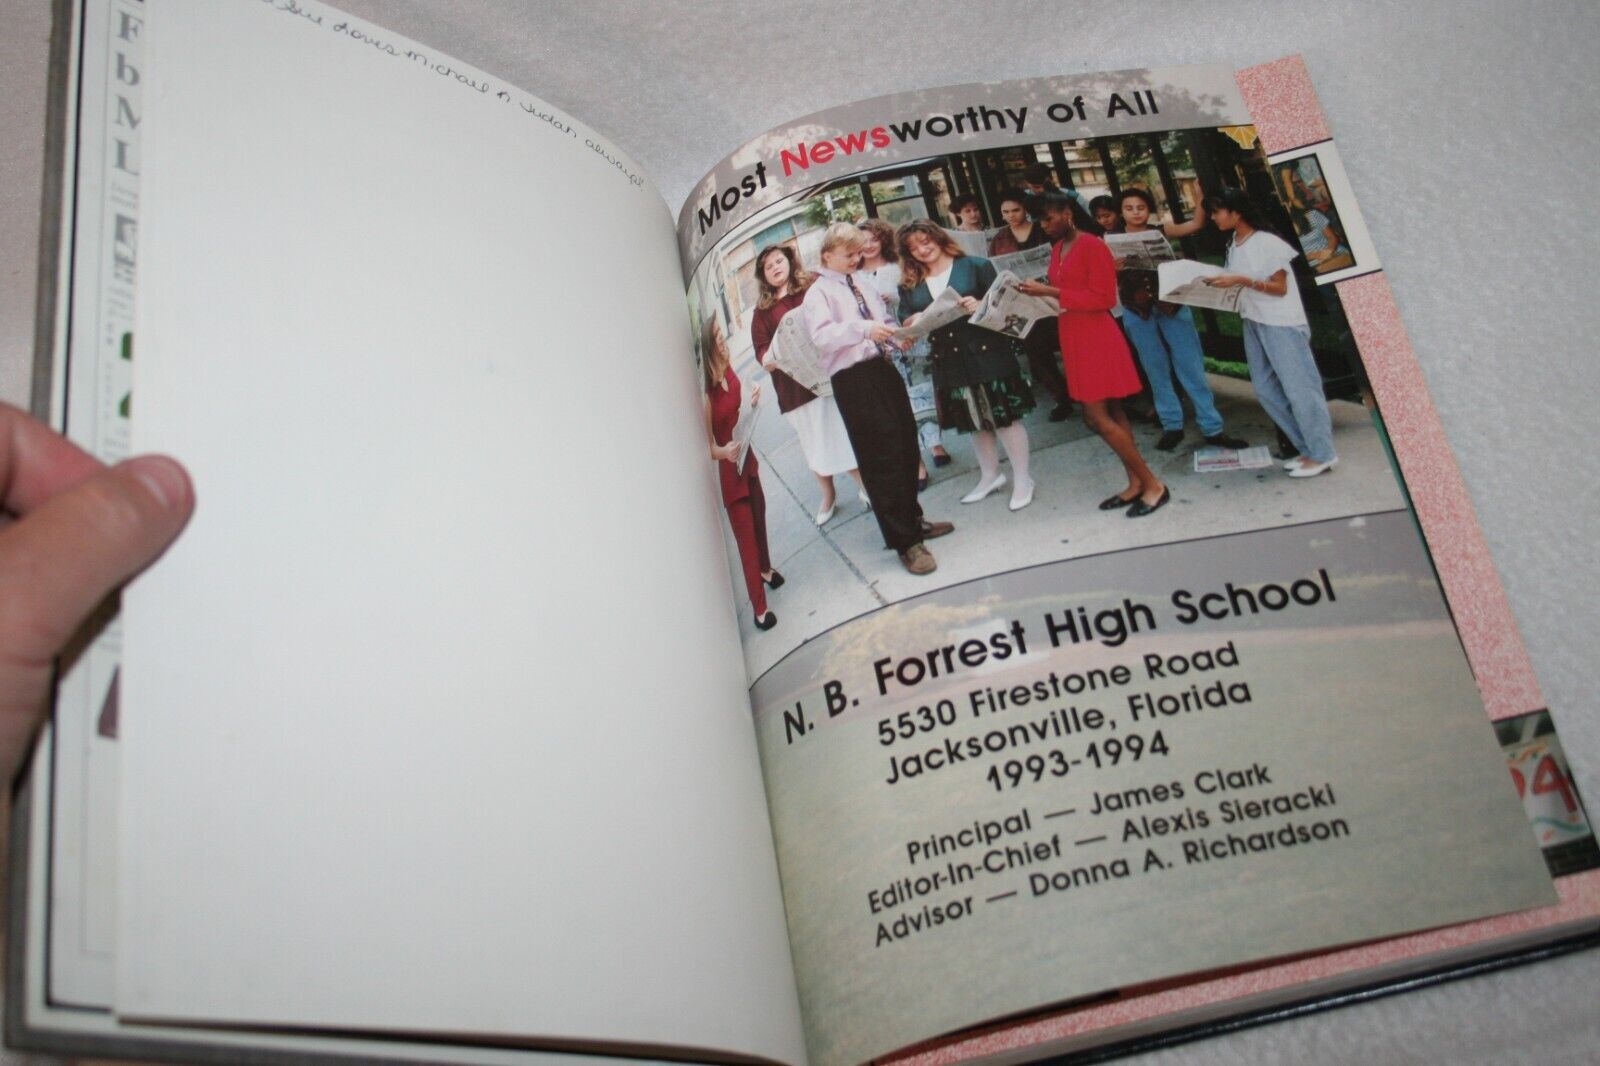 F
b
M
L
Sue Loves Michael n Judah always!!
Most Newsworthy of All
N. B. Forrest High School
5530 Firestone Road
Jacksonville, Florida
1993-1994
Principal — James Clark
Editor-In-Chief — Alexis Sieracki
Advisor — Donna A. Richardson
94